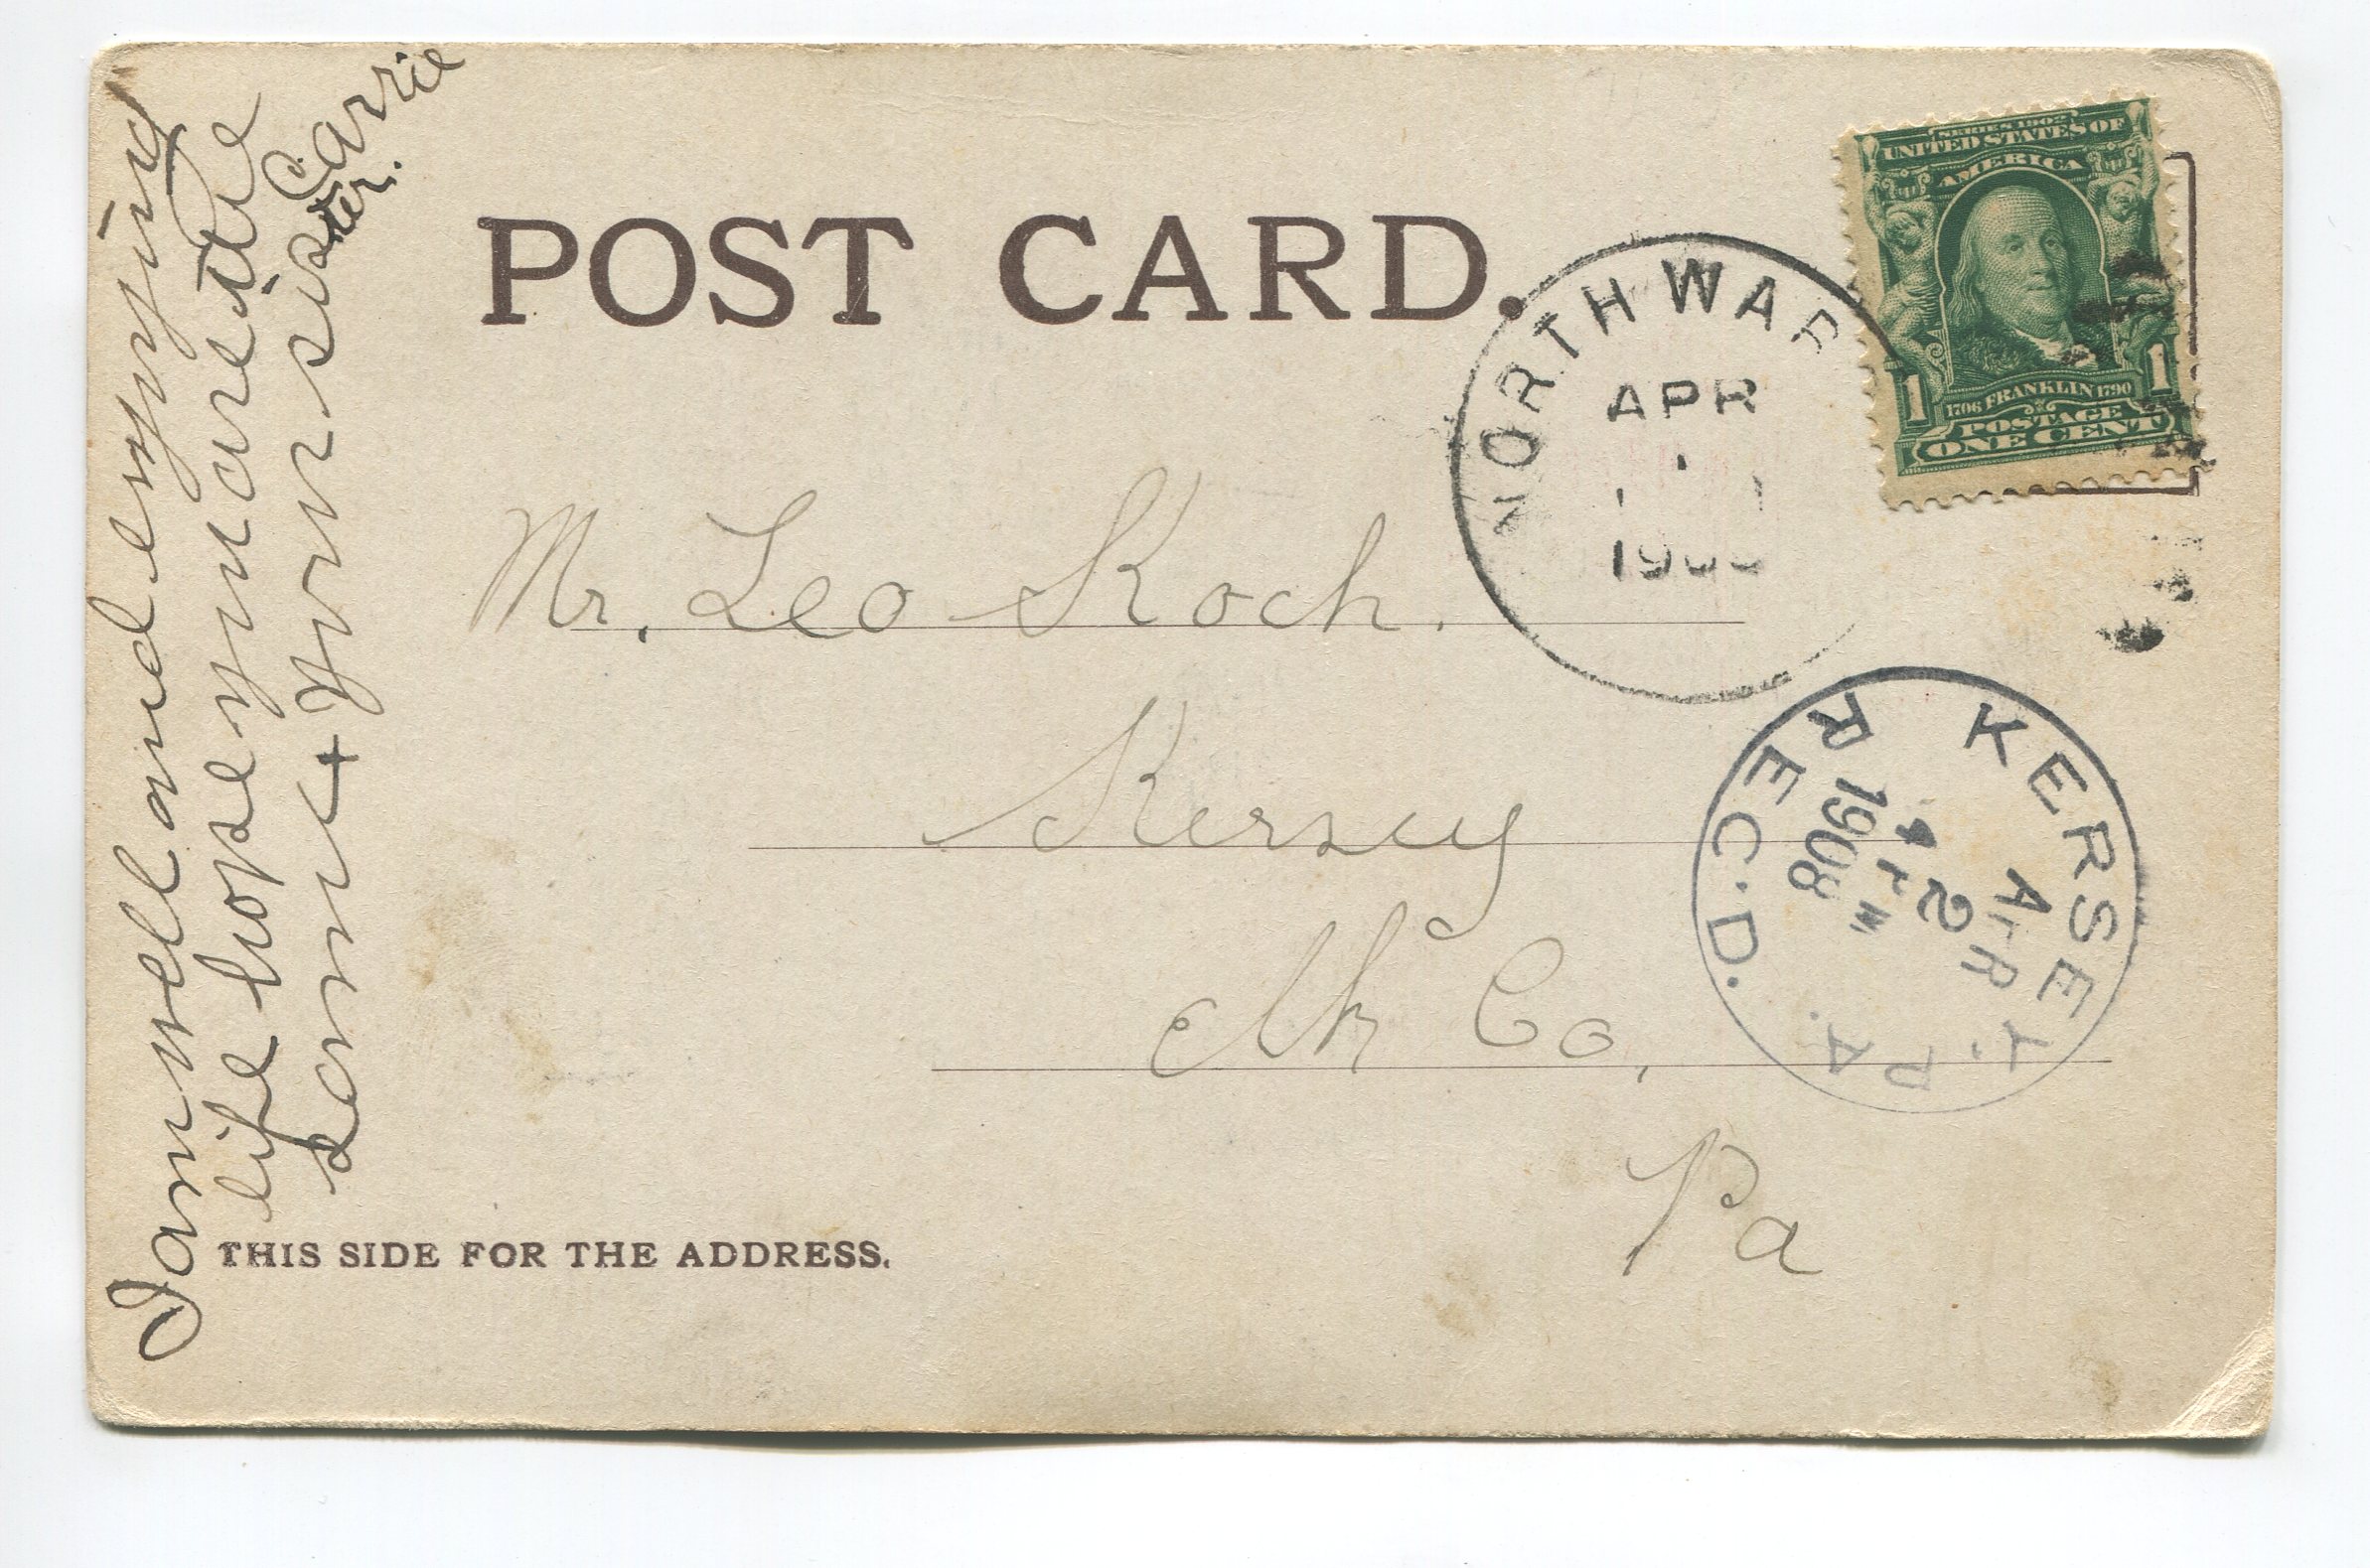 POST CARD.
SERIES 1902
UNITED STATES OF
AMERICA
1 1
1706 FRANKLIN 1790
POSTAGE
ONE CENT
NORTH WAR
APR
1
Mr. Leo Koch.
Kersey
Elk Co,
Pa
KERSEY. PA.
APR
2
4 PM
1908
REC'D.
I am well and enjoying
life hope you are the
same + your sister.
Carrie
THIS SIDE FOR THE ADDRESS.